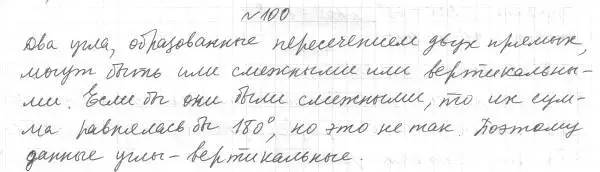 №100
Два угла, образованные пересечением двух прямых,
могут быть или смежными или вертикальны-
ми. Если бы они были смежными, то их сум-
ма равнялась бы 180°, но это не так. Поэтому
данные углы - вертикальные.